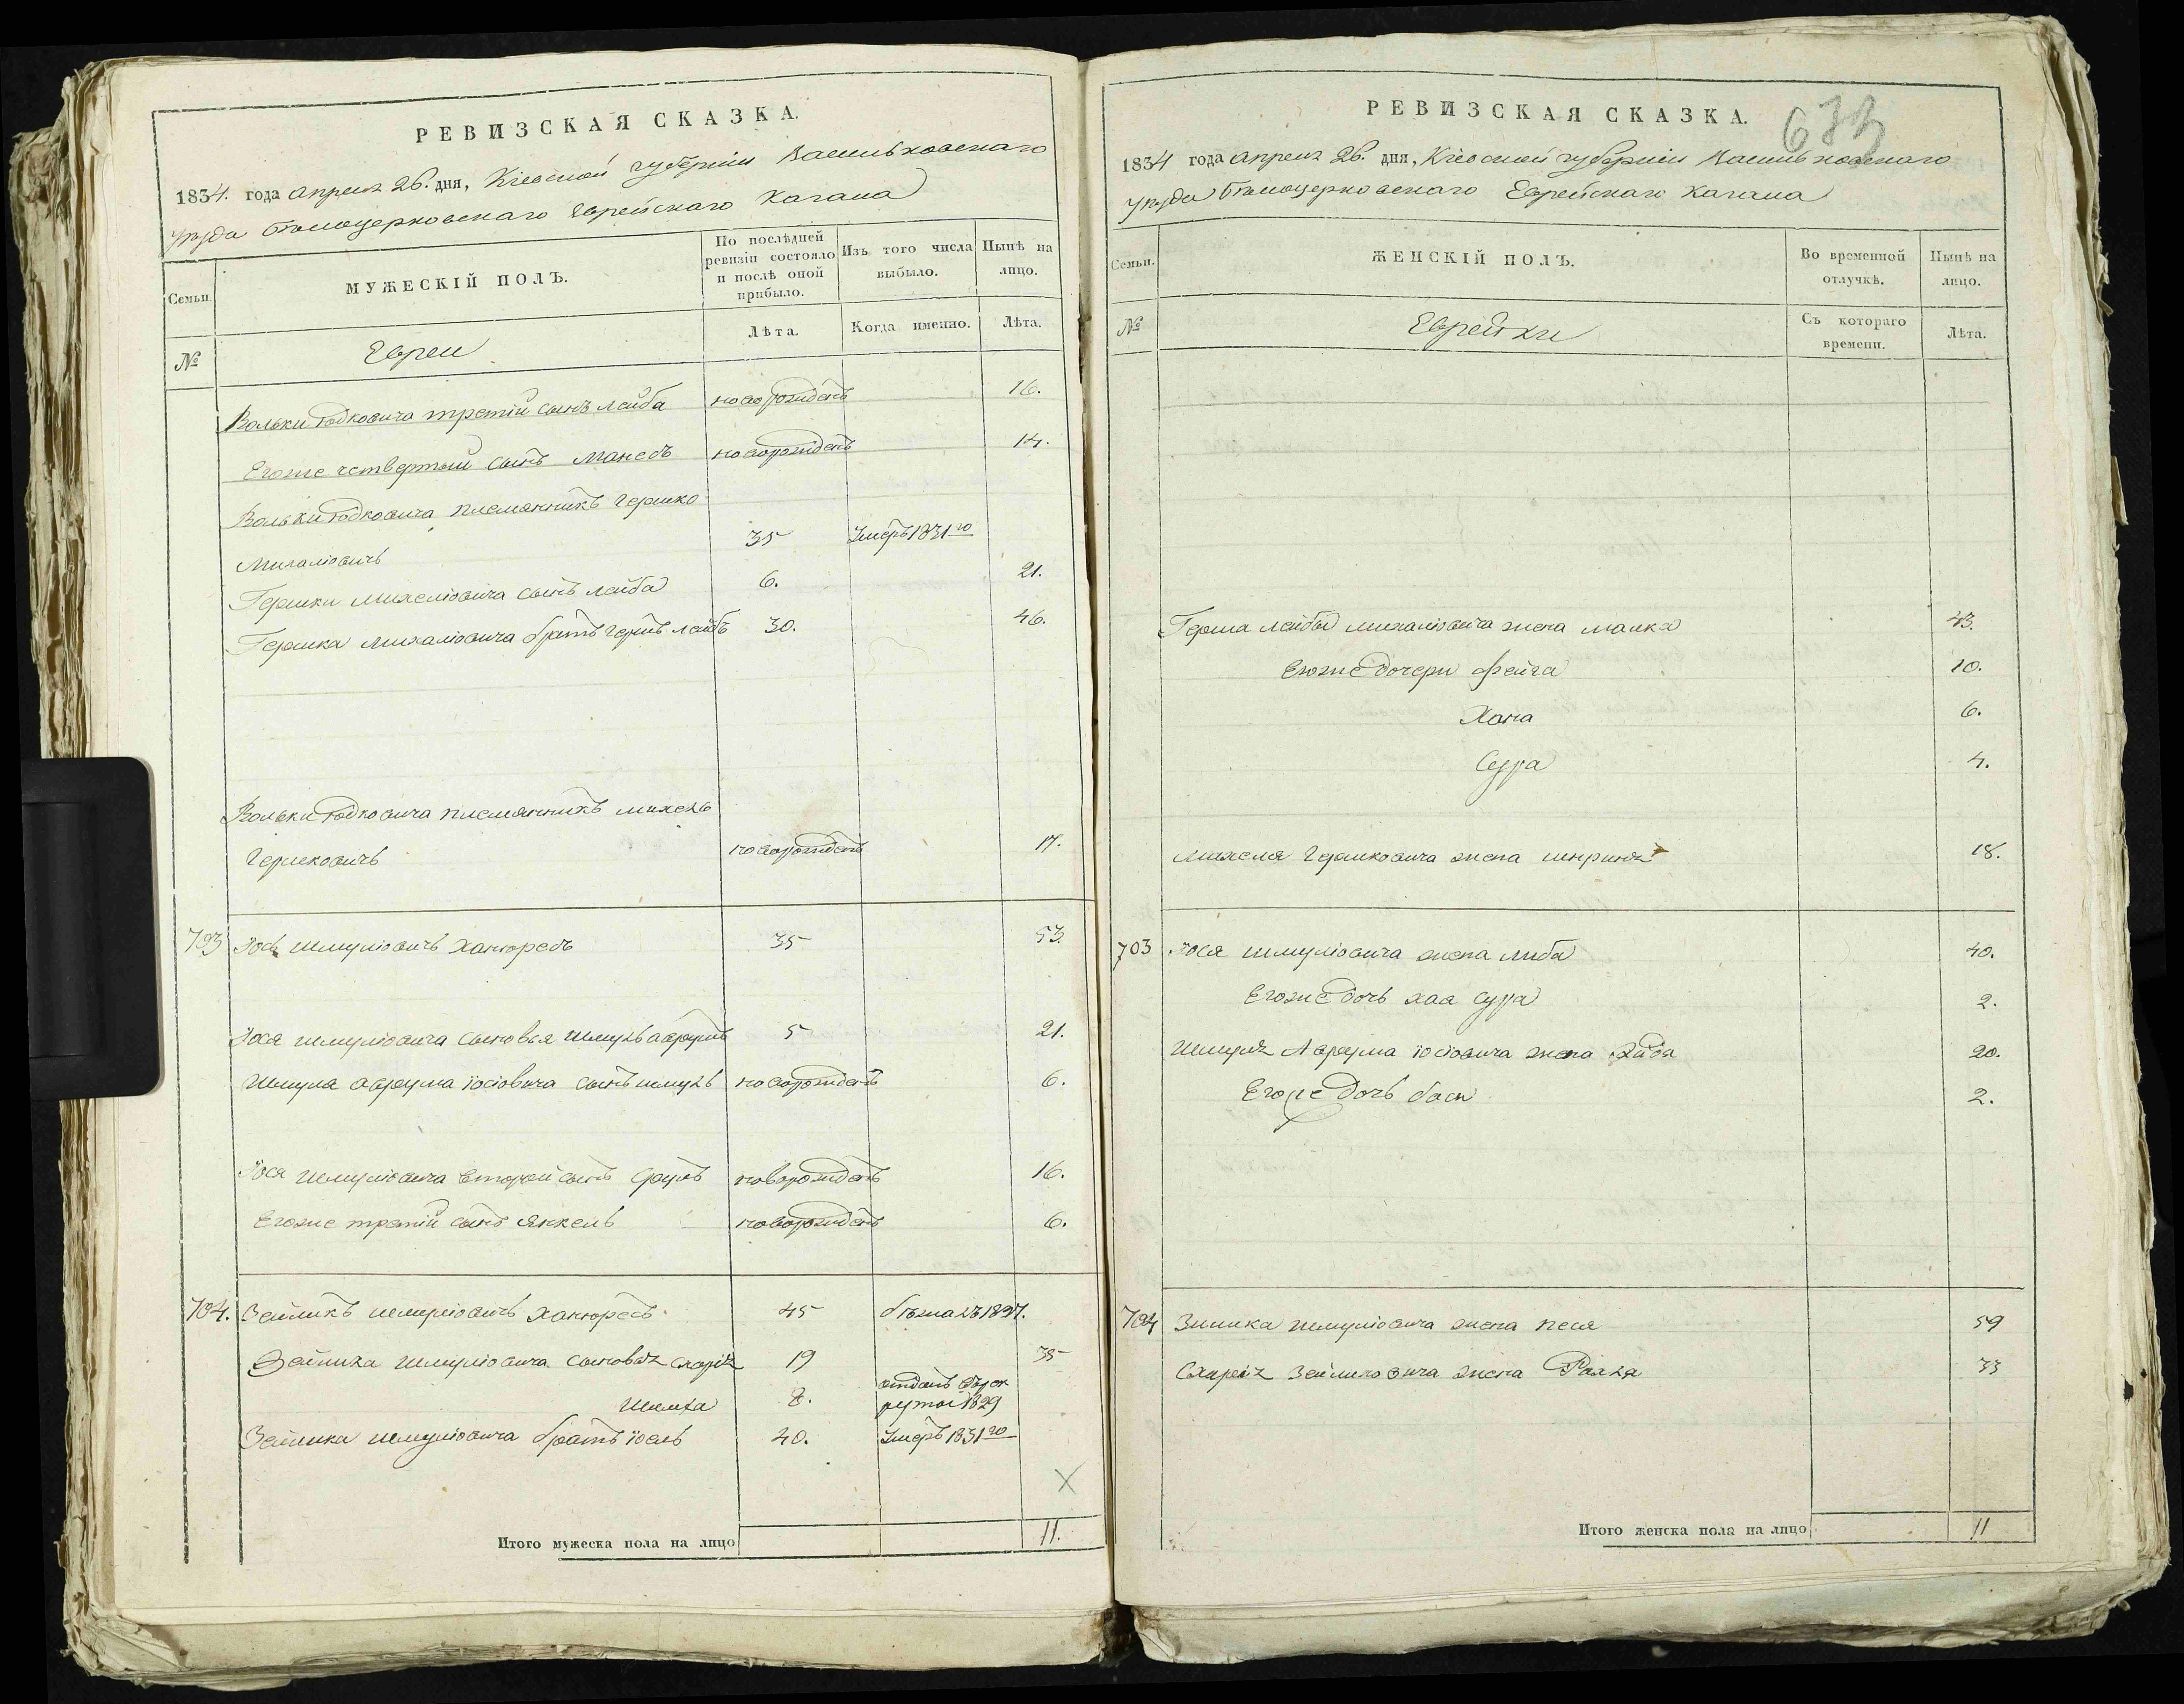 РЕВИЗСКАЯ СКАЗКА.
1834. года апреля 26. дня, Кіевской губерніи Васильковскаго
уѣзда Бѣлоцерковскаго Еврейскаго Кагала
Семьи.
МУЖЕСКІЙ ПОЛЪ.
По послѣдней ревизіи состояло и послѣ оной прибыло.
Изъ того числа выбыло.
Нынѣ на лицо.
№
Евреи
Лѣта.
Когда именно.
Лѣта.
Вольки Юдковича третій сынъ Лейба новорожденъ 16.
Егоже четвертый сынъ Манесъ новорожденъ 14.
Вольки Юдковича племянникъ Гершко
Михаліовичъ 35 Умеръ 1831го
Гершки Михеліовича сынъ Лейба 6. 21.
Гершка Михаліовича братъ Гершъ Лейбъ 30. 46.
Вольки Юдковича племянникъ Михель
Гершковичъ новорожденъ 17.
703 Іось Шмуліовичъ Ханюресъ 35 53.
Іося Шмуліовича сыновья Шмуль Аврумъ 5 21.
Шмуля Аврума Іосіовича сынъ Шмуль новорожденъ 6.
Іося Шмуліовича второй сынъ Сруль новорожденъ 16.
Егоже третій сынъ Янкель новорожденъ 6.
704. Зейликъ Шмуліовичъ Ханюресъ 45 бѣжалъ 1827.
Зейлика Шмуліовича сыновья 19 35
8. отданъ в рекруты 1829
Зейлика Шмуліовича братъ Іоель 40. Умеръ 1831го
Х
Итого мужеска пола на лицо 11.
РЕВИЗСКАЯ СКАЗКА.
1834 года апреля 26. дня, Кіевской губерніи Васильковскаго
уѣзда Бѣлоцерковскаго Еврейскаго Кагала
Семьи.
ЖЕНСКІЙ ПОЛЪ.
Во временной отлучкѣ.
Нынѣ на лицо.
№
Еврейки
Съ котораго времени.
Лѣта.
Герша Лейбы Михаліовича жена Малка 43.
Егоже дочери Фейга 10.
Хана 6.
Сура 4.
Михеля Гершковича жена Шприня 18.
703 Іося Шмуліовича жена Либа 40.
Егоже дочь Хая Сура 2.
Шмуля Аврума Іосіовича жена 20.
Егоже дочь Бася 2.
704 Зилика Шмуліовича жена Песя 59
Зейликовича жена 33
Итого женска пола на лицо 11